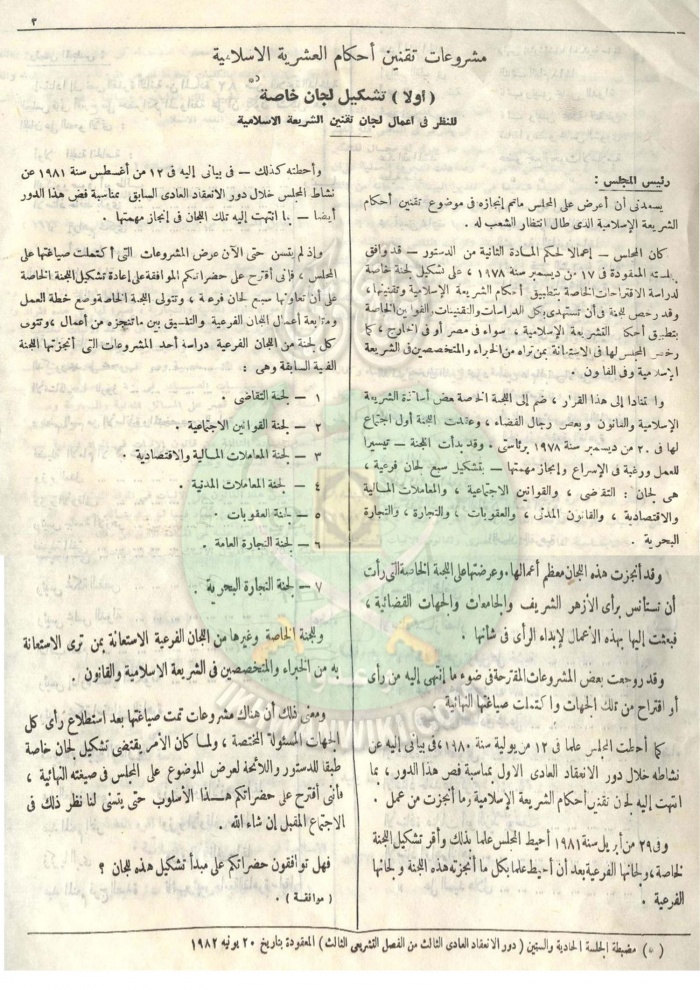 ٣
مشروعات تقنين أحكام العشرية الاسلامية
( أولا ) تشكيل لجان خاصة (*)
للنظر فى اعمال لجان تقنين الشريعة الاسلامية
رئيس المجلس :
يسعدنى أن أعرض على المجلس ماتم إنجازه فى موضوع تقنين أحكام
الشريعة الإسلامية الذى طال انتظار الشعب له .
كان المجلس – إعمالا لحكم المادة الثانية من الدستور – قد وافق
بجلسته المعقودة فى ١٧ من ديسمبر سنة ١٩٧٨ ، على تشكيل لجنة خاصة
لدراسة الاقتراحات الخاصة بتطبيق أحكام الشريعة الإسلامية وتقنينها ،
وقد رخص للجنة فى أن تستهدى بكل الدراسات والتقنينات ، القوانين الخاصة
بتطبيق أحكام الشريعة الإسلامية ، سواء فى مصر أو فى الخارج ، كما
رخص المجلس لها فى الاستعانة بمن تراه من الخبراء والمتخصصين فى الشريعة
الإسلامية وفى القانون .
واستنادا إلى هذا القرار ، ضم إلى اللجنة الخاصة بعض أساتذة الشريعة
الإسلامية والقانون وبعض رجال القضاء ، وعقدت اللجنة أول اجتماع
لها فى ٢٠ من ديسمبر سنة ١٩٧٨ برئاستى . وقد بدأت اللجنة – تيسيرا
للعمل ورغبة فى الإسراع وإنجاز مهمتها – بتشكيل سبع لجان فرعية ،
هى لجان : التقاضى ، والقوانين الاجتماعية ، والمعاملات المالية
والاقتصادية ، والقانون المدنى ، والعقوبات ، والتجارة ، والتجارة
البحرية .
وقد أنجزت هذه اللجان معظم أعمالها ، وعرضتها على اللجنة الخاصة التى رأت
أن تستأنس برأى الأزهر الشريف والجامعات والجهات القضائية ،
فبعثت إليها بهذه الأعمال لإبداء الرأى فى شأنها .
وقد روجعت بعض المشروعات المقترحة فى ضوء ما إنتهى إليه من رأى
أو اقتراح من تلك الجهات واكتملت صياغتها النهائية
كما أحطت المجلس علما فى ١٢ من يولية سنة ١٩٨٠ ، فى بيانى إليه عن
نشاطه خلال دور الانعقاد العادى الاول بمناسبة فض هذا الدور ، بما
انتهت إليه لجان تقنين أحكام الشريعة الإسلامية وما أنجزت من عمل .
وفى ٢٩ من أبريل سنة ١٩٨١ أحيط المجلس علما بذلك وأقر تشكيل اللجنة
الخاصة ، ولجانها الفرعية بعد أن أحيط علما بكل ما أنجزته هذه اللجنة ولجانها
الفرعية .
وأحطته كذلك – فى بيانى إليه فى ١٢ من أغسطس سنة ١٩٨١ عن
نشاط المجلس خلال دور الانعقاد العادى السابق بمناسبة فض هذا الدور
أيضا – بما انتهت إليه تلك اللجان فى إنجاز مهمتها .
وإذ لم يتسن حتى الآن عرض المشروعات التى اكتملت صياغتها على
المجلس ، فإنى أقترح على حضراتكم الموافقة على إعادة تشكيل اللجنة الخاصة
على أن تعاونها سبع لجان فرعية ، وتتولى اللجنة الخاصة وضع خطة العمل
ومتابعة أعمال اللجان الفرعية والتنسيق بين ماتنجزه من أعمال ، وتتولى
كل لجنة من اللجان الفرعية دراسة أحد المشروعات التى أنجزتها اللجنة
الفنية السابقة وهى :
١ – لجنة التقاضى .
٢ – لجنة القوانين الاجتماعية .
٣ – لجنة المعاملات المالية والاقتصادية .
٤ – لجنة المعاملات المدنية .
٥ – لجنة العقوبات .
٦ – لجنة التجارة العامة .
٧ – لجنة التجارة البحرية .
وللجنة الخاصة وغيرها من اللجان الفرعية الاستعانة بمن ترى الاستعانة
به من الخبراء والمتخصصين فى الشريعة الاسلامية والقانون .
ومعنى ذلك أن هناك مشروعات تمت صياغتها بعد استطلاع رأى كل
الجهات المسئولة المختصة ، ولما كان الأمر يقتضى تشكيل لجان خاصة
طبقا للدستور واللائحة لعرض الموضوع على المجلس فى صيغته النهائية ،
فأنى أقترح على حضراتكم هذا الأسلوب حتى يتسنى لنا نظر ذلك فى
الاجتماع المقبل إن شاء الله .
فهل توافقون حضراتكم على مبدأ تشكيل هذه للجان ؟
( موافقة . )
(*) مضبطة الجلسة الحادية والستين ( دور الانعقاد العادى الثالث من الفصل التشريعى الثالث ) المعقودة بتاريخ ٢٠ يونيه ١٩٨٢